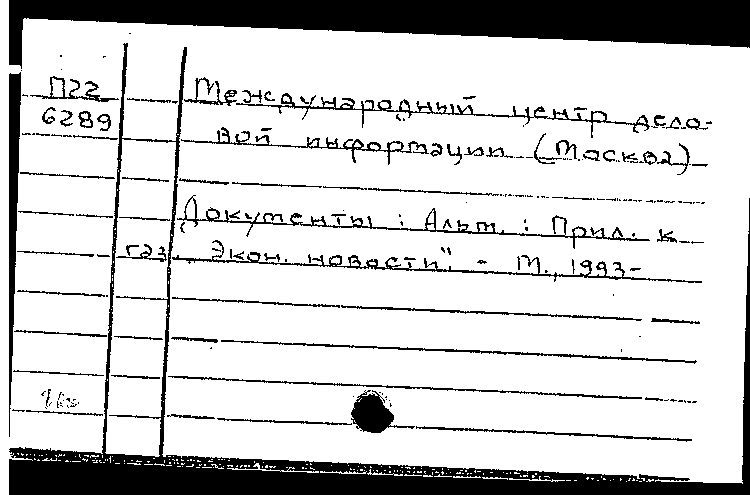 П22
6289
Международный центр дело-
вой информации (Москва)
Документы : Альт. : Прил. к
газ. „Экон. новости". - М., 1993-